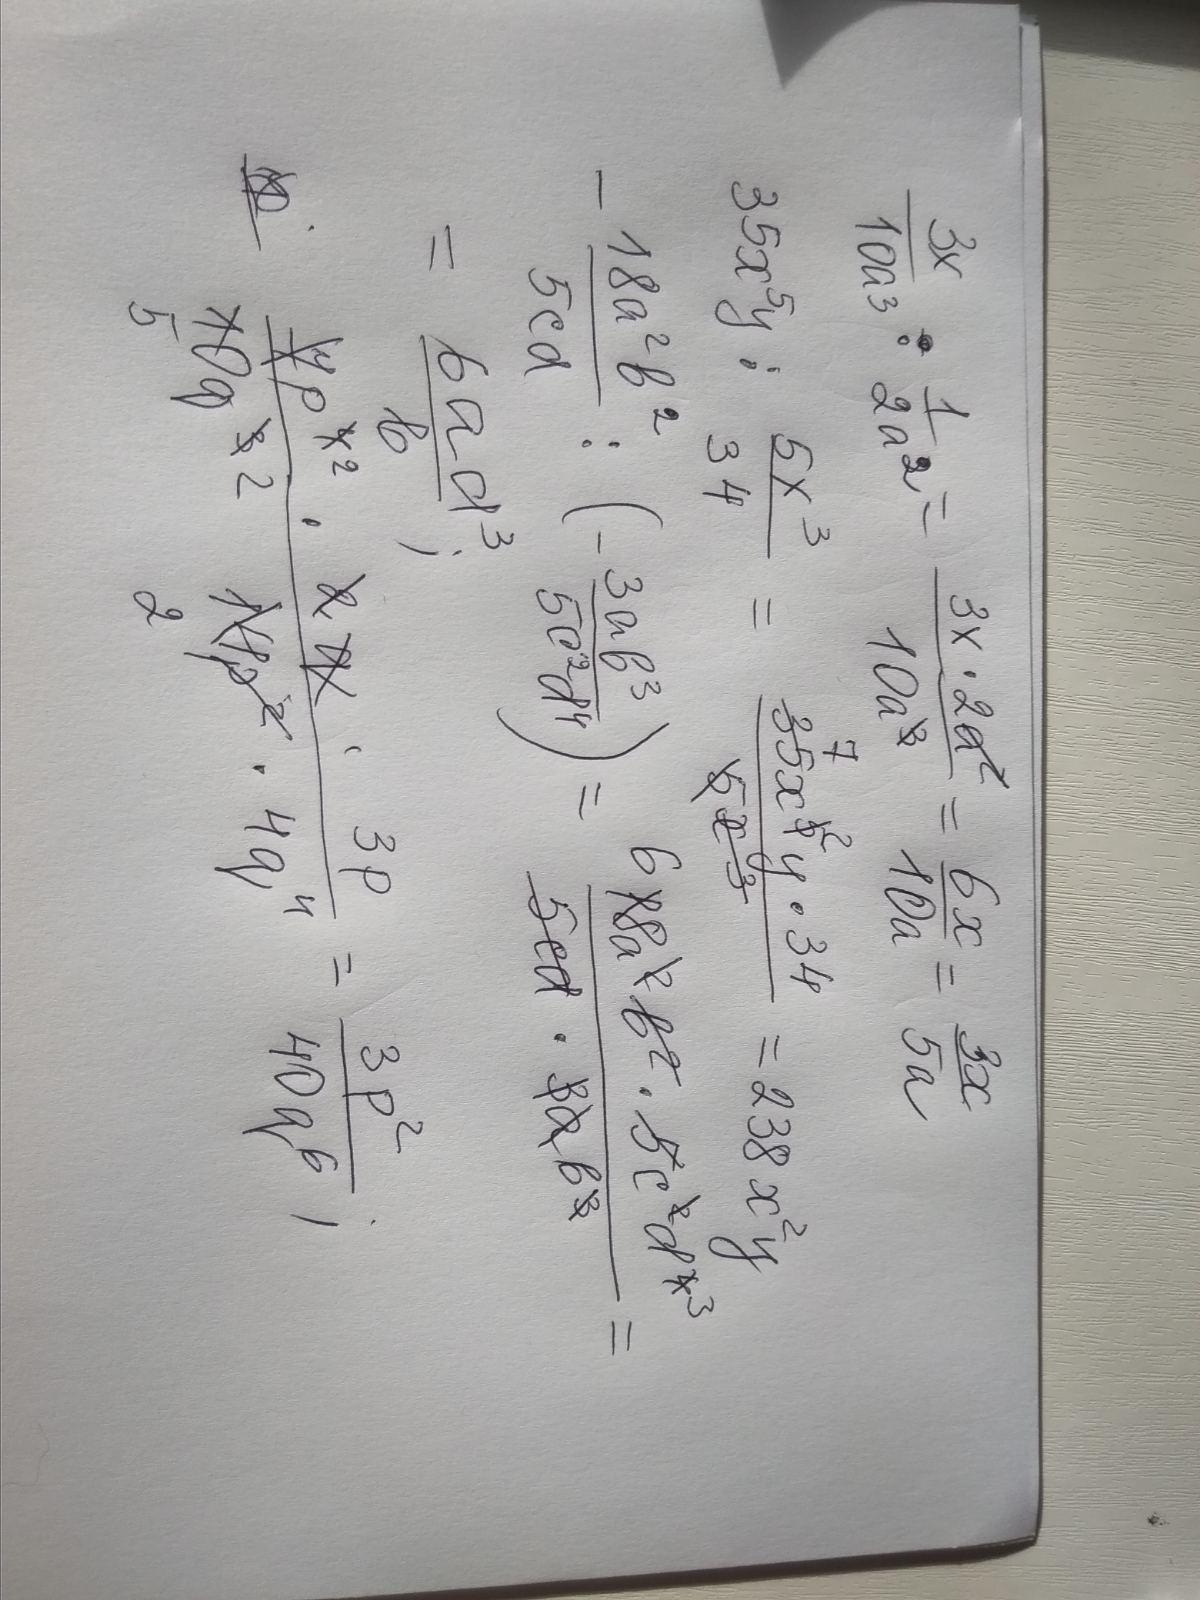 3x/10a³ : 1/2a² = 3x·2a²/10a³ = 6x/10a = 3x/5a
35x⁵y : 5x³/34 = 7 35x⁵ ² y·34/5x³ = 238x²y
- 18a²b²/5cd : (- 3ab³/5c²d⁴) = 6 18a²b²·5c²d⁴ ³/5cd·3ab³ =
= 6acd³/b ;
4p⁴ ²/10q³ 2 5 · · 3p/p²·4q⁴ 2 = 3p²/40q⁶ ;